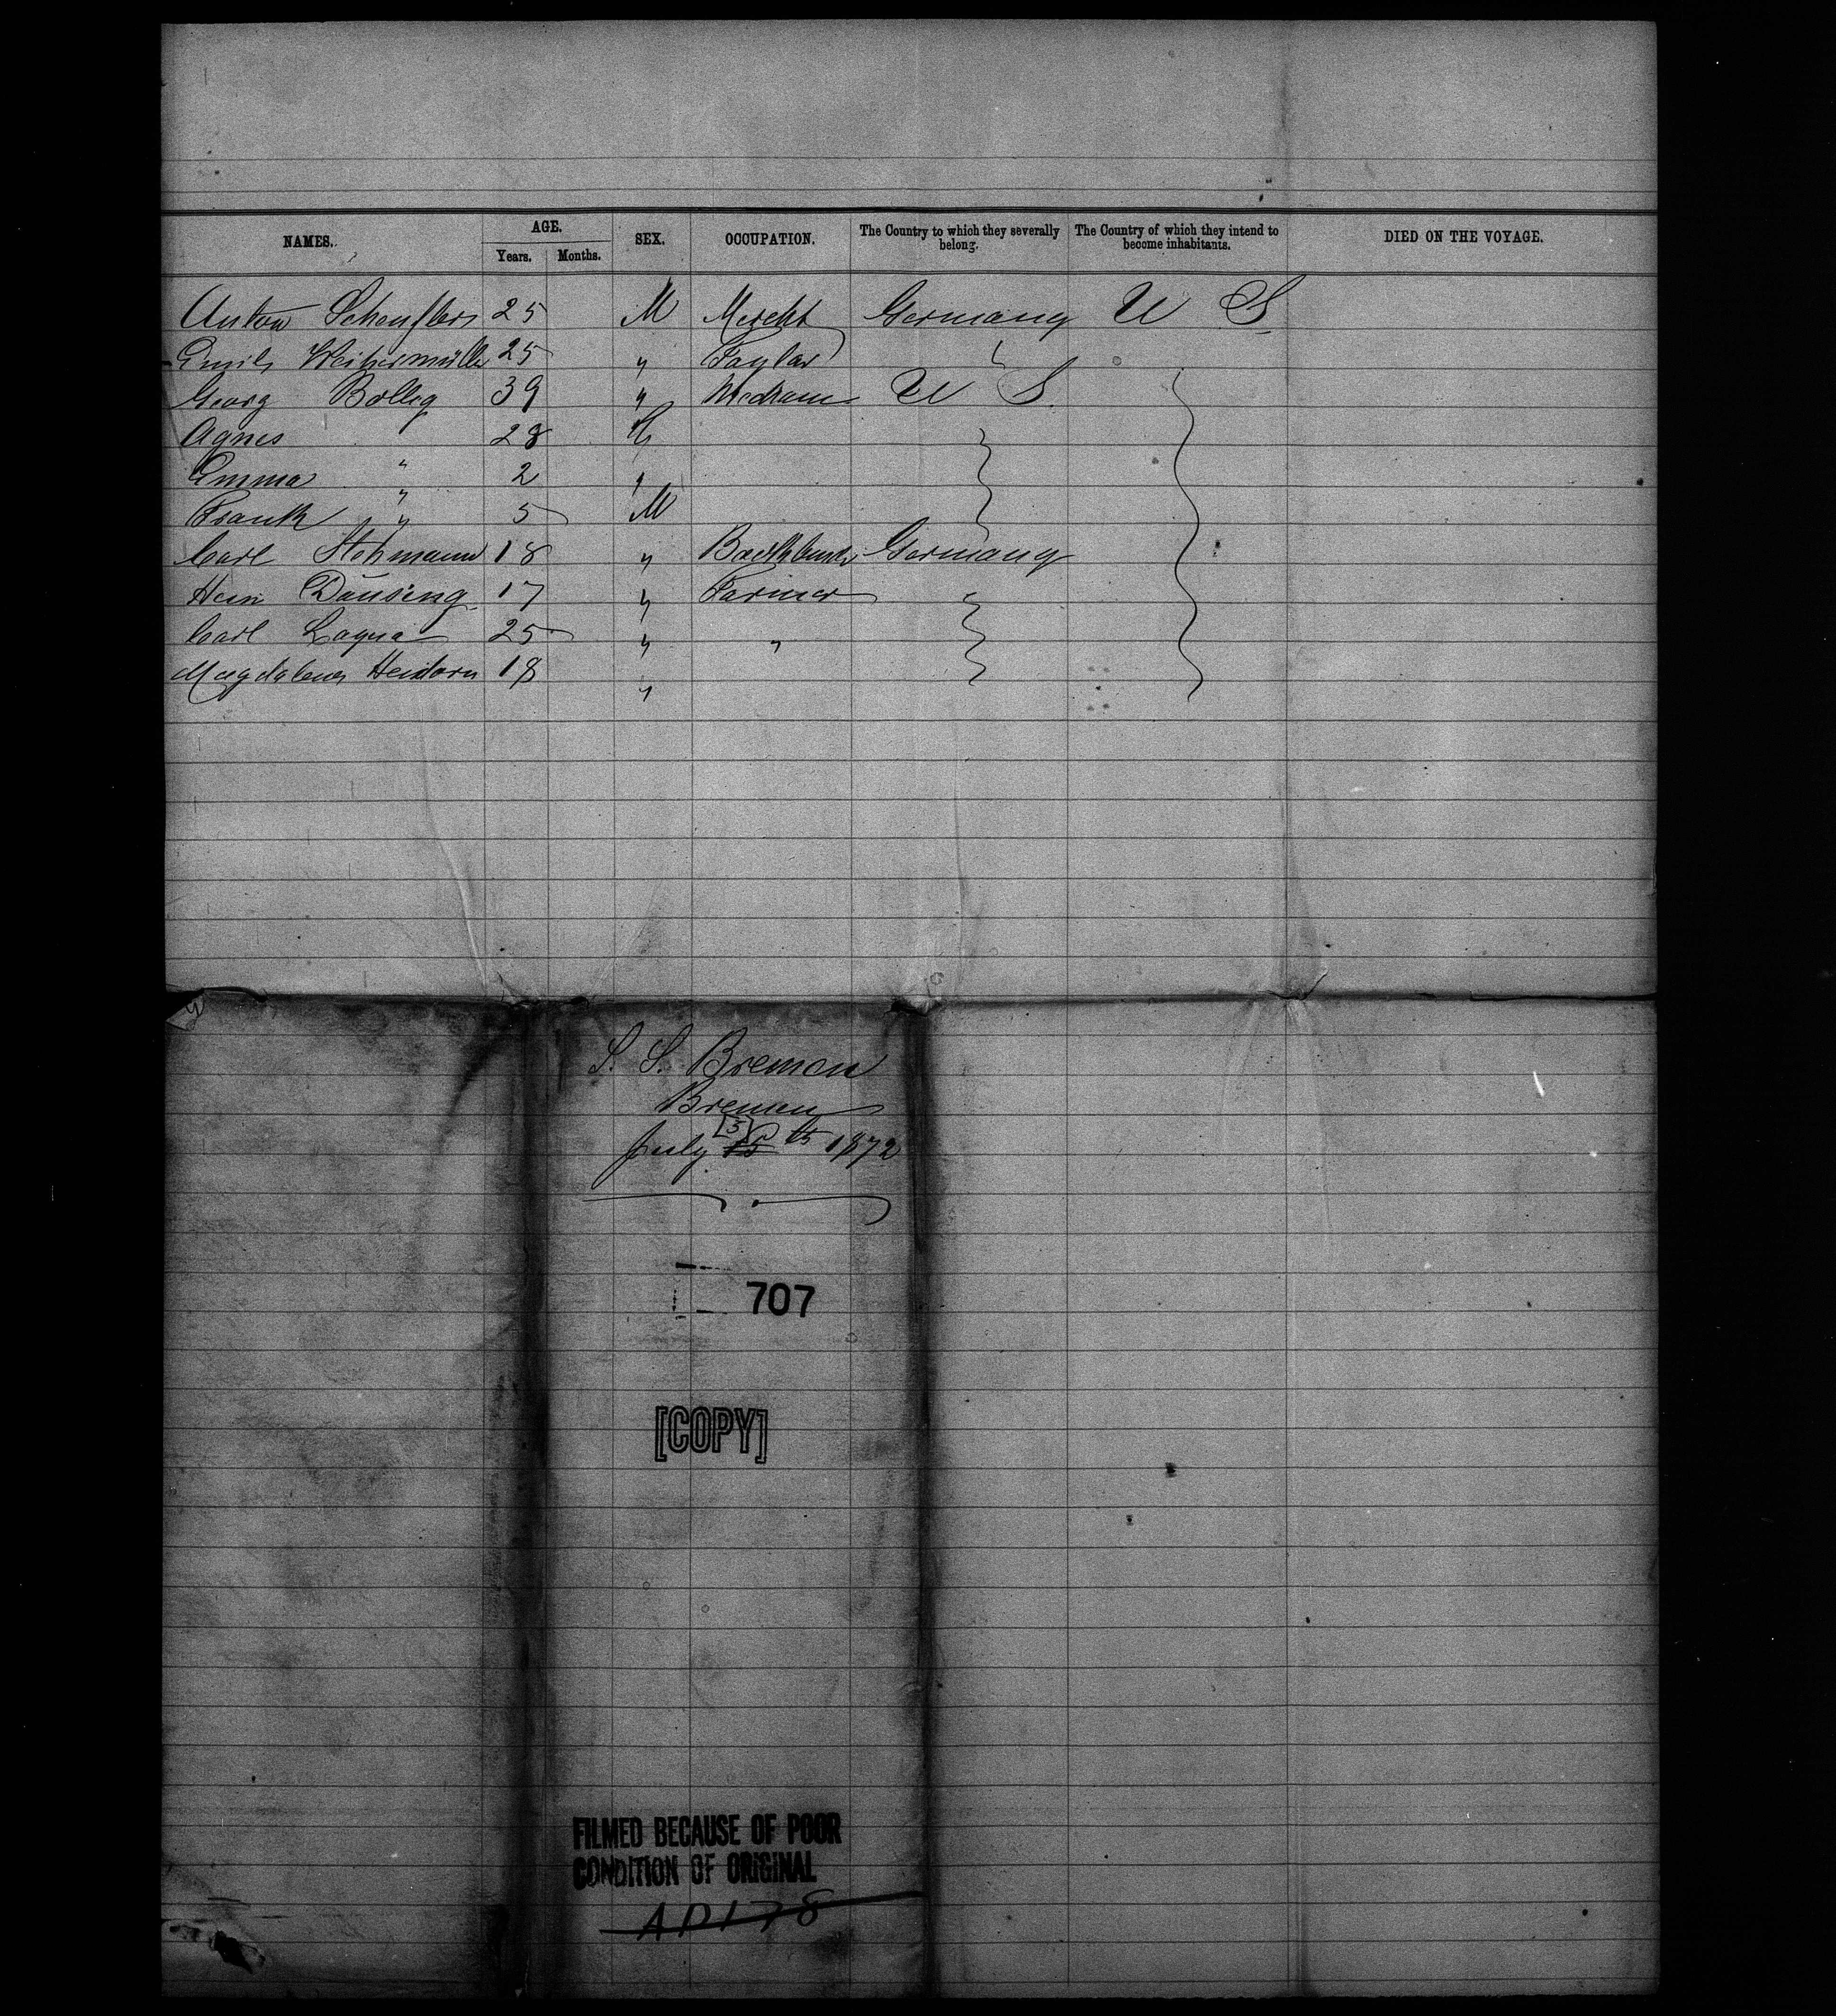 NAMES. AGE. SEX. OCCUPATION. The Country to which they severally belong. The Country of which they intend to become inhabitants. DIED ON THE VOYAGE.
Years. Months.
Anton 25 M Mercht Germany U S
Emil 25 " Taylor
Georg Bolleg 39 " U S.
Agnes " 28
Emma " 2 "
Frank " 5 M
Carl Stohmann 18 " Germany
Hein Dänsing 17 " Farmer
Carl Laqua 25 " "
Magdalena Heidorn 18 "
S. S. Bremen
Bremen
[5]
July 15 th 1872
707
[COPY]
FILMED BECAUSE OF POOR
CONDITION OF ORIGINAL
AP178